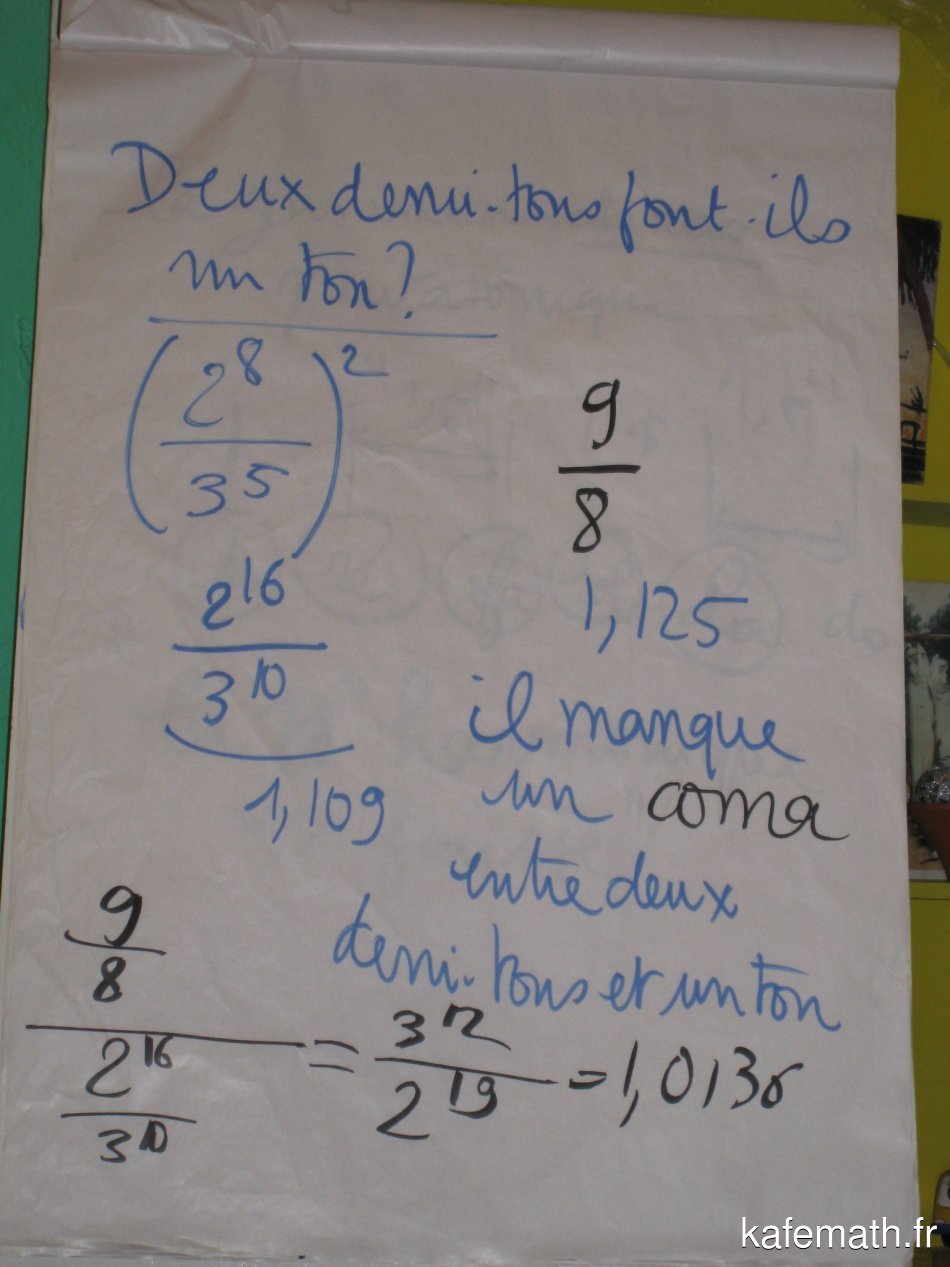 Deux demi-tons font-ils
un ton?
(2^8/3^5)^2
9/8
2^16/3^10
1,125
1,109
il manque
un coma
entre deux
demi-tons et un ton
(9/8)/(2^16/3^10) = 3^12/2^19 = 1,0136
kafemath.fr